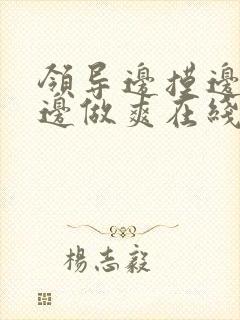 領导邊摸邊
邊做爽在綫
楊志毅